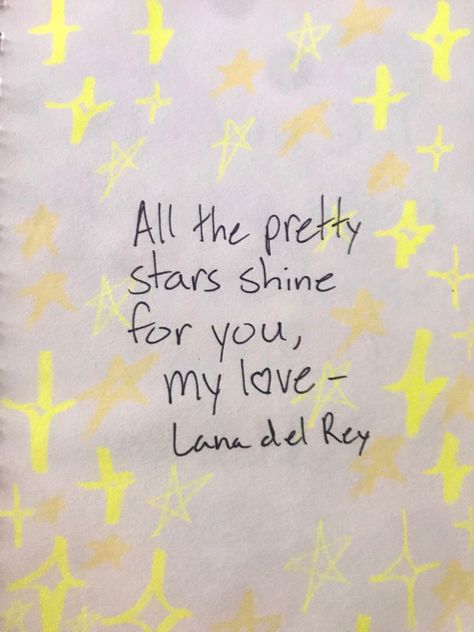 All the pretty
stars shine
for you,
my love –
Lana del Rey